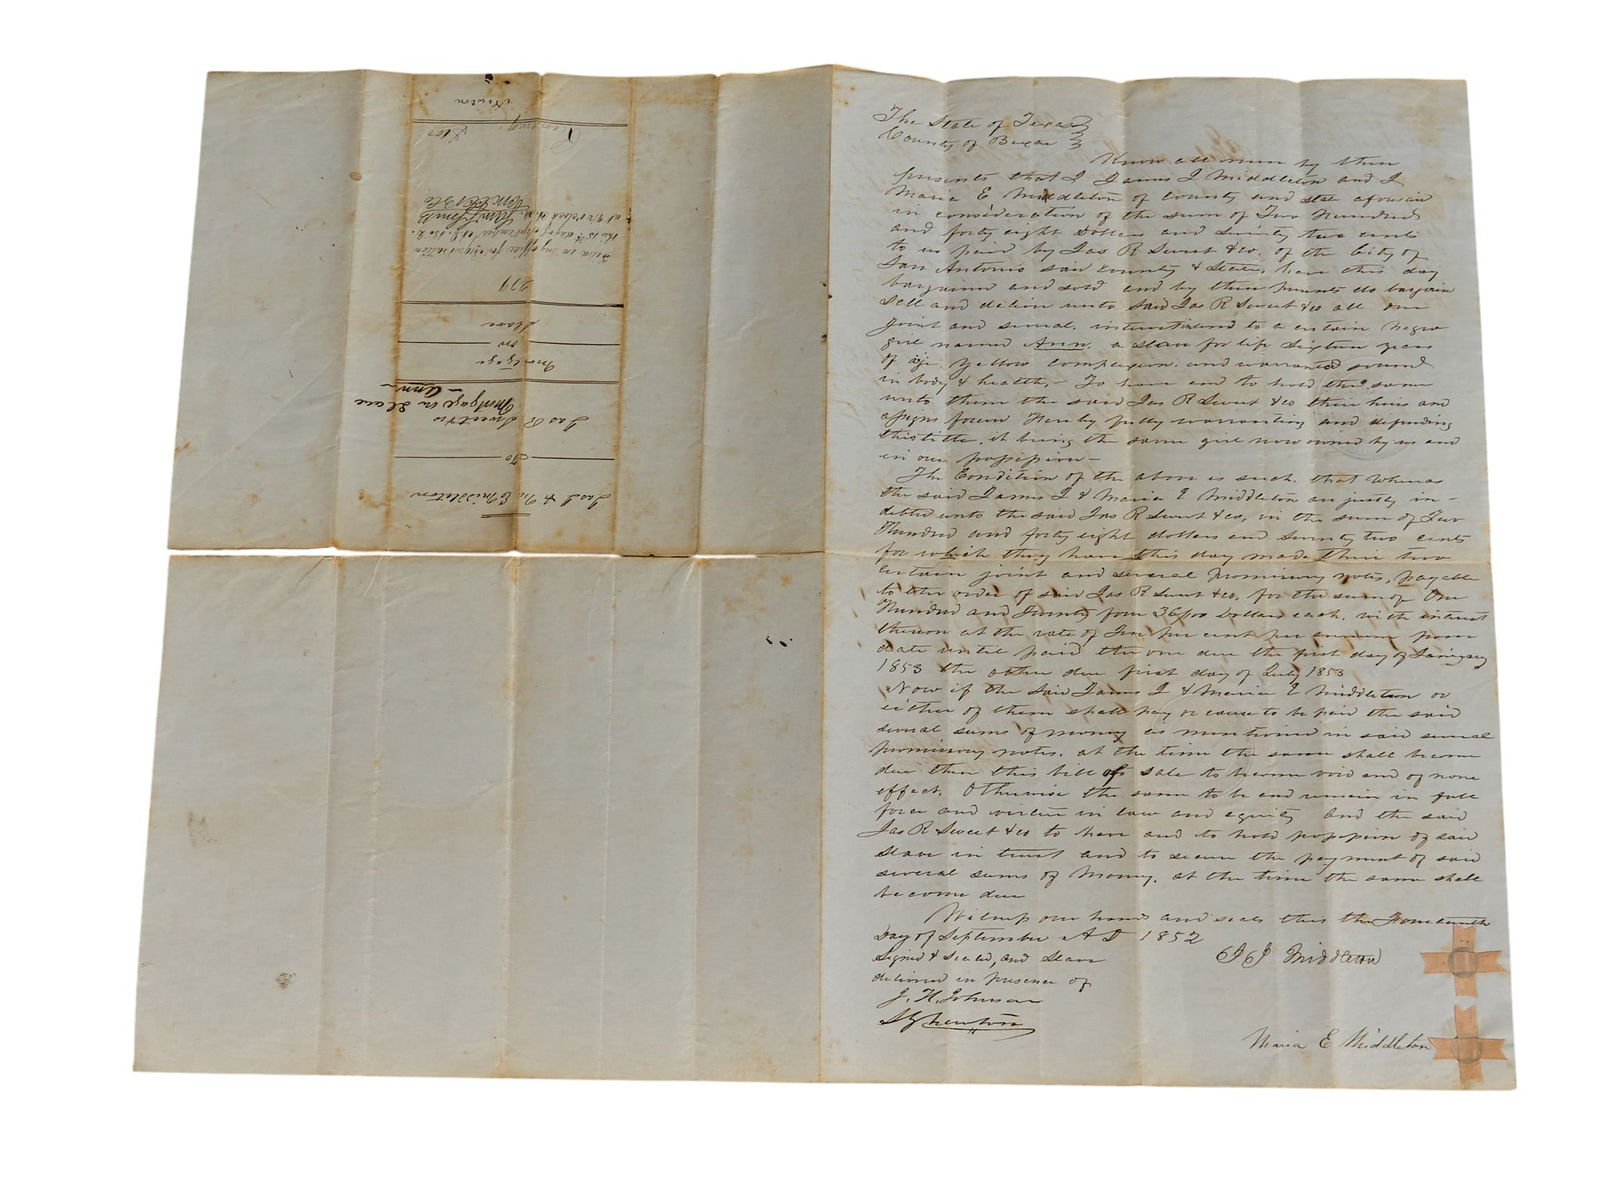 The State of Texas
County of Bexar
Know all men by these
presents that I James J Middleton and I
Maria E Middleton of County and state aforesaid
in consideration of the sum of Two Hundred
and forty eight Dollars and Seventy two cents
to us paid by Jas R Sweet & co. of the City of
San Antonio said County & State, have this day
bargained and sold and by these presents do bargain
Sell and deliver unto said Jas R Sweet & co all our
joint and several interest in and to a certain Negro
girl named Ann, a slave for life Sixteen years
of age, Yellow complexion and warranted sound
in body & health, - To have and to hold the same
unto them the said Jas R Sweet & co their heirs and
assigns forever Hereby fully warranting and defending
this title, it being the same girl now owned by us and
in our possession -
The Condition of the above is such, that Whereas
the said James J & Maria E Middleton are justly in-
debted unto the said Jas R Sweet & co, in the sum of Two
Hundred and forty eight dollars and seventy two cents
for which they have this day made their two
certain joint and several promissory notes, payable
to the order of said Jas R Sweet & co, for the sum of One
Hundred and Twenty four 36/100 Dollars each, with interest
thereon at the rate of Ten per cent per annum from
date until paid the one due the first day of January
1853 the other due first day of July 1853
Now if the said James J & Maria E Middleton or
either of them shall pay or cause to be paid the said
several sums of money as mentioned in said several
promissory notes, at the time the same shall become
due then this bill of sale to become void and of none
effect, Otherwise the same to be and remain in full
force and virtue in law and equity and the said
Jas R Sweet & co to have and to hold possession of said
Slave in trust and to secure the payment of said
several sums of Money, at the time the same shall
become due
Witness our hands and seals this the Fourteenth
Day of September A D 1852
Signed & Sealed, and Slave
delivered in presence of
J. H. Johnson
Newton
J Middleton
Maria E Middleton
Jas J & M E Middleton
To
Jas R Sweet & co
Mortgage on Slave
- Ann -
Mortgage
on
Slave
279
Filed in my office for registration
this 15th day of September A.D. 1852.
at o'clock
Newton